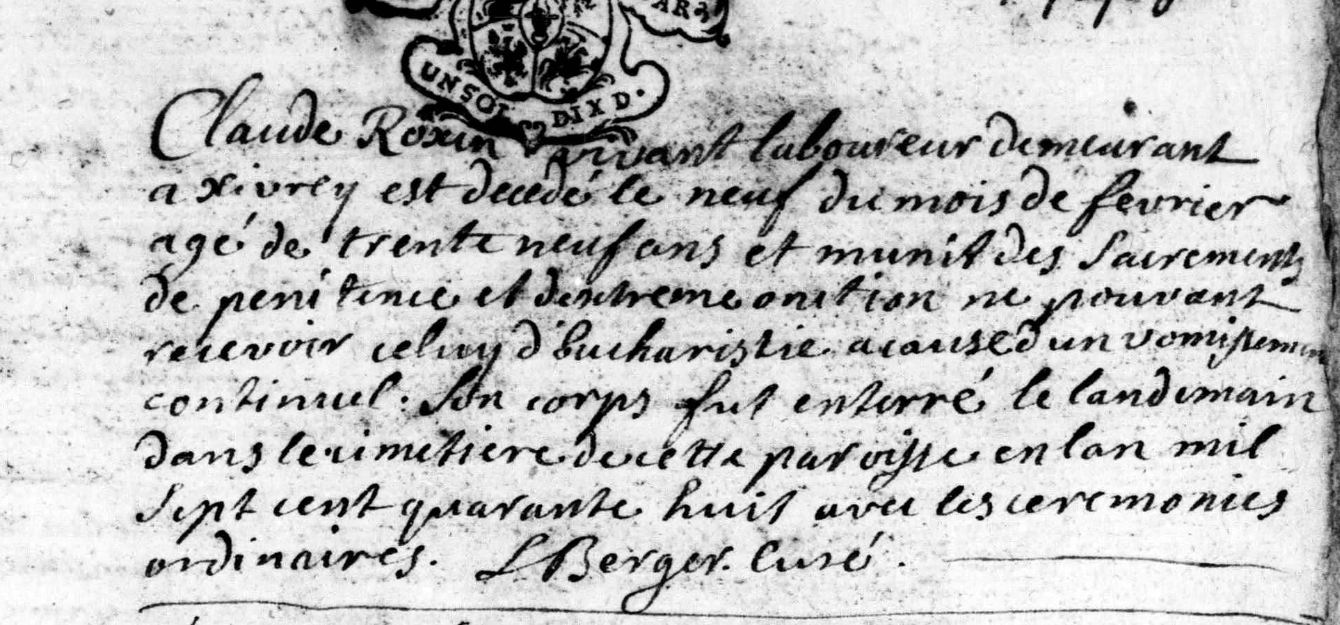 UN SOL DIX D.
Claude Roxin vivant laboureur demeurant
a Xivrey est decedé le neuf du mois de fevrier
agé de trente neuf ans et munit des Sacrements
de penitence et d'extreme onction ne pouvant
recevoir celuy d'Eucharistie a cause d'un vomissement
continuel. Son corps fut enterré le landemain
dans le cimetiere de cette paroisse en lan mil
Sept cent quarante huit avec les ceremonies
ordinaires. L Berger. Curé.